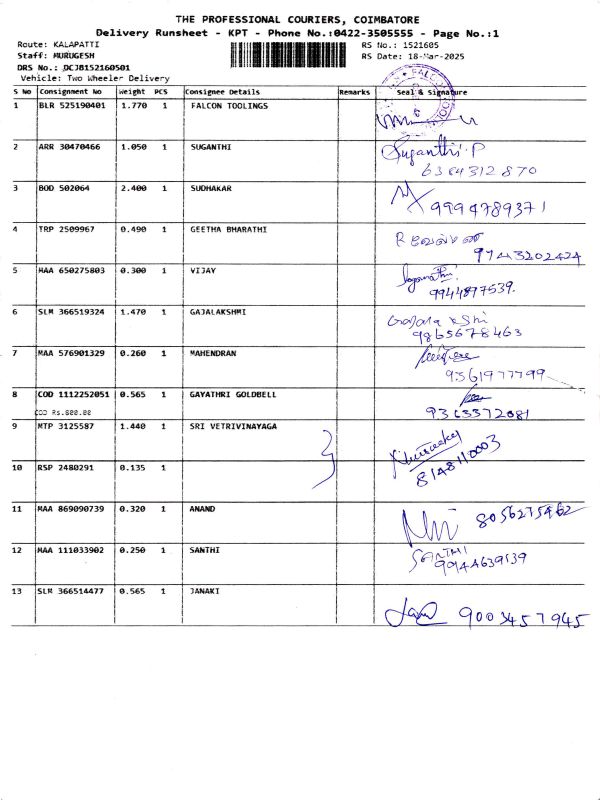 THE PROFESSIONAL COURIERS, COIMBATORE
Delivery Runsheet - KPT - Phone No.:0422-3505555 - Page No.:1
Route: KALAPATTI
RS No.: 1521605
Staff: MURUGESH
RS Date: 18-Mar-2025
DRS No.: DCJB152160501
Vehicle: Two Wheeler Delivery
S No Consignment No Weight PCS Consignee Details Remarks Seal & Signature
1 BLR 525190401 1.770 1 FALCON TOOLINGS
2 ARR 30470466 1.050 1 SUGANTHI Suganthi.P
6364312870
3 BOD 502064 2.400 1 SUDHAKAR
9994789371
4 TRP 2509967 0.490 1 GEETHA BHARATHI
9743202424
5 MAA 650275803 0.300 1 VIJAY
9944877539.
6 SLM 366519324 1.470 1 GAJALAKSHMI
9865678463
7 MAA 576901329 0.260 1 MAHENDRAN
9361977799
8 COD 1112252051 0.565 1 GAYATHRI GOLDBELL
COD Rs.800.00
9363372081
9 MTP 3125587 1.440 1 SRI VETRIVINAYAGA
8148110003
10 RSP 2480291 0.135 1
11 MAA 869090739 0.320 1 ANAND 8056275462
12 MAA 111033902 0.250 1 SANTHI SANTHI
9944639539
13 SLM 366514477 0.565 1 JANAKI
9003457945